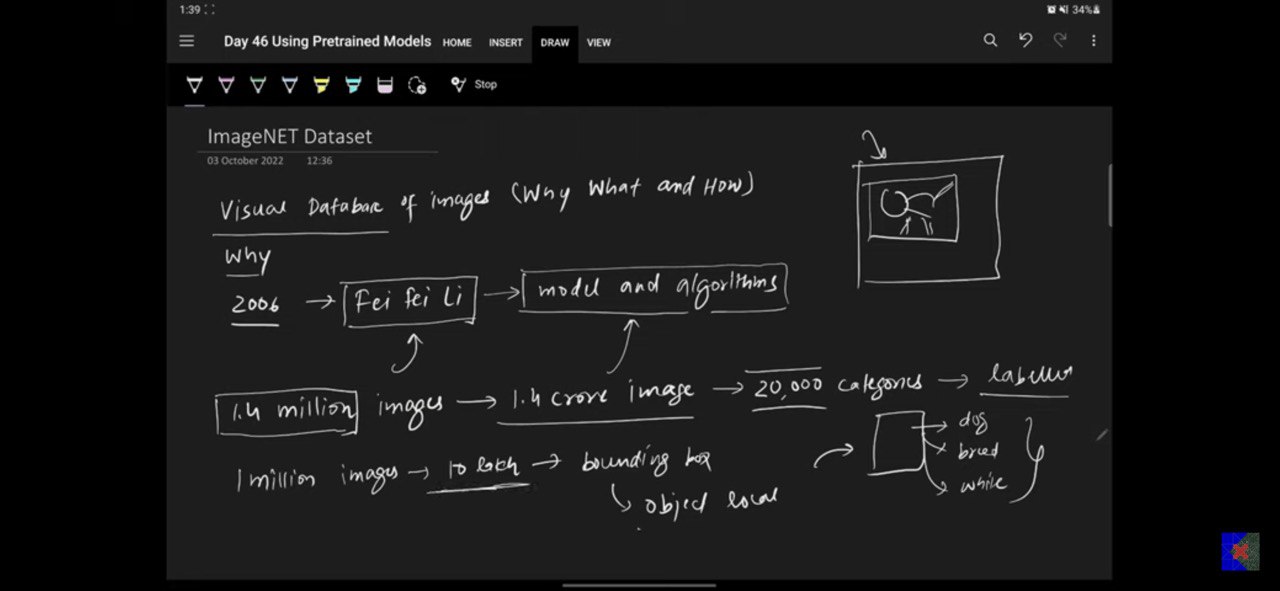 1:39 34%
Day 46 Using Pretrained Models HOME INSERT DRAW VIEW
Stop
ImageNET Dataset
03 October 2022 12:36
Visual Database of images (Why What and How)
Why
2006 → Fei fei Li → model and algorithms
1.4 million images → 1.4 crore image → 20,000 categories →
1 million images → 10 lakh → bounding box
object local
dog
breed
white